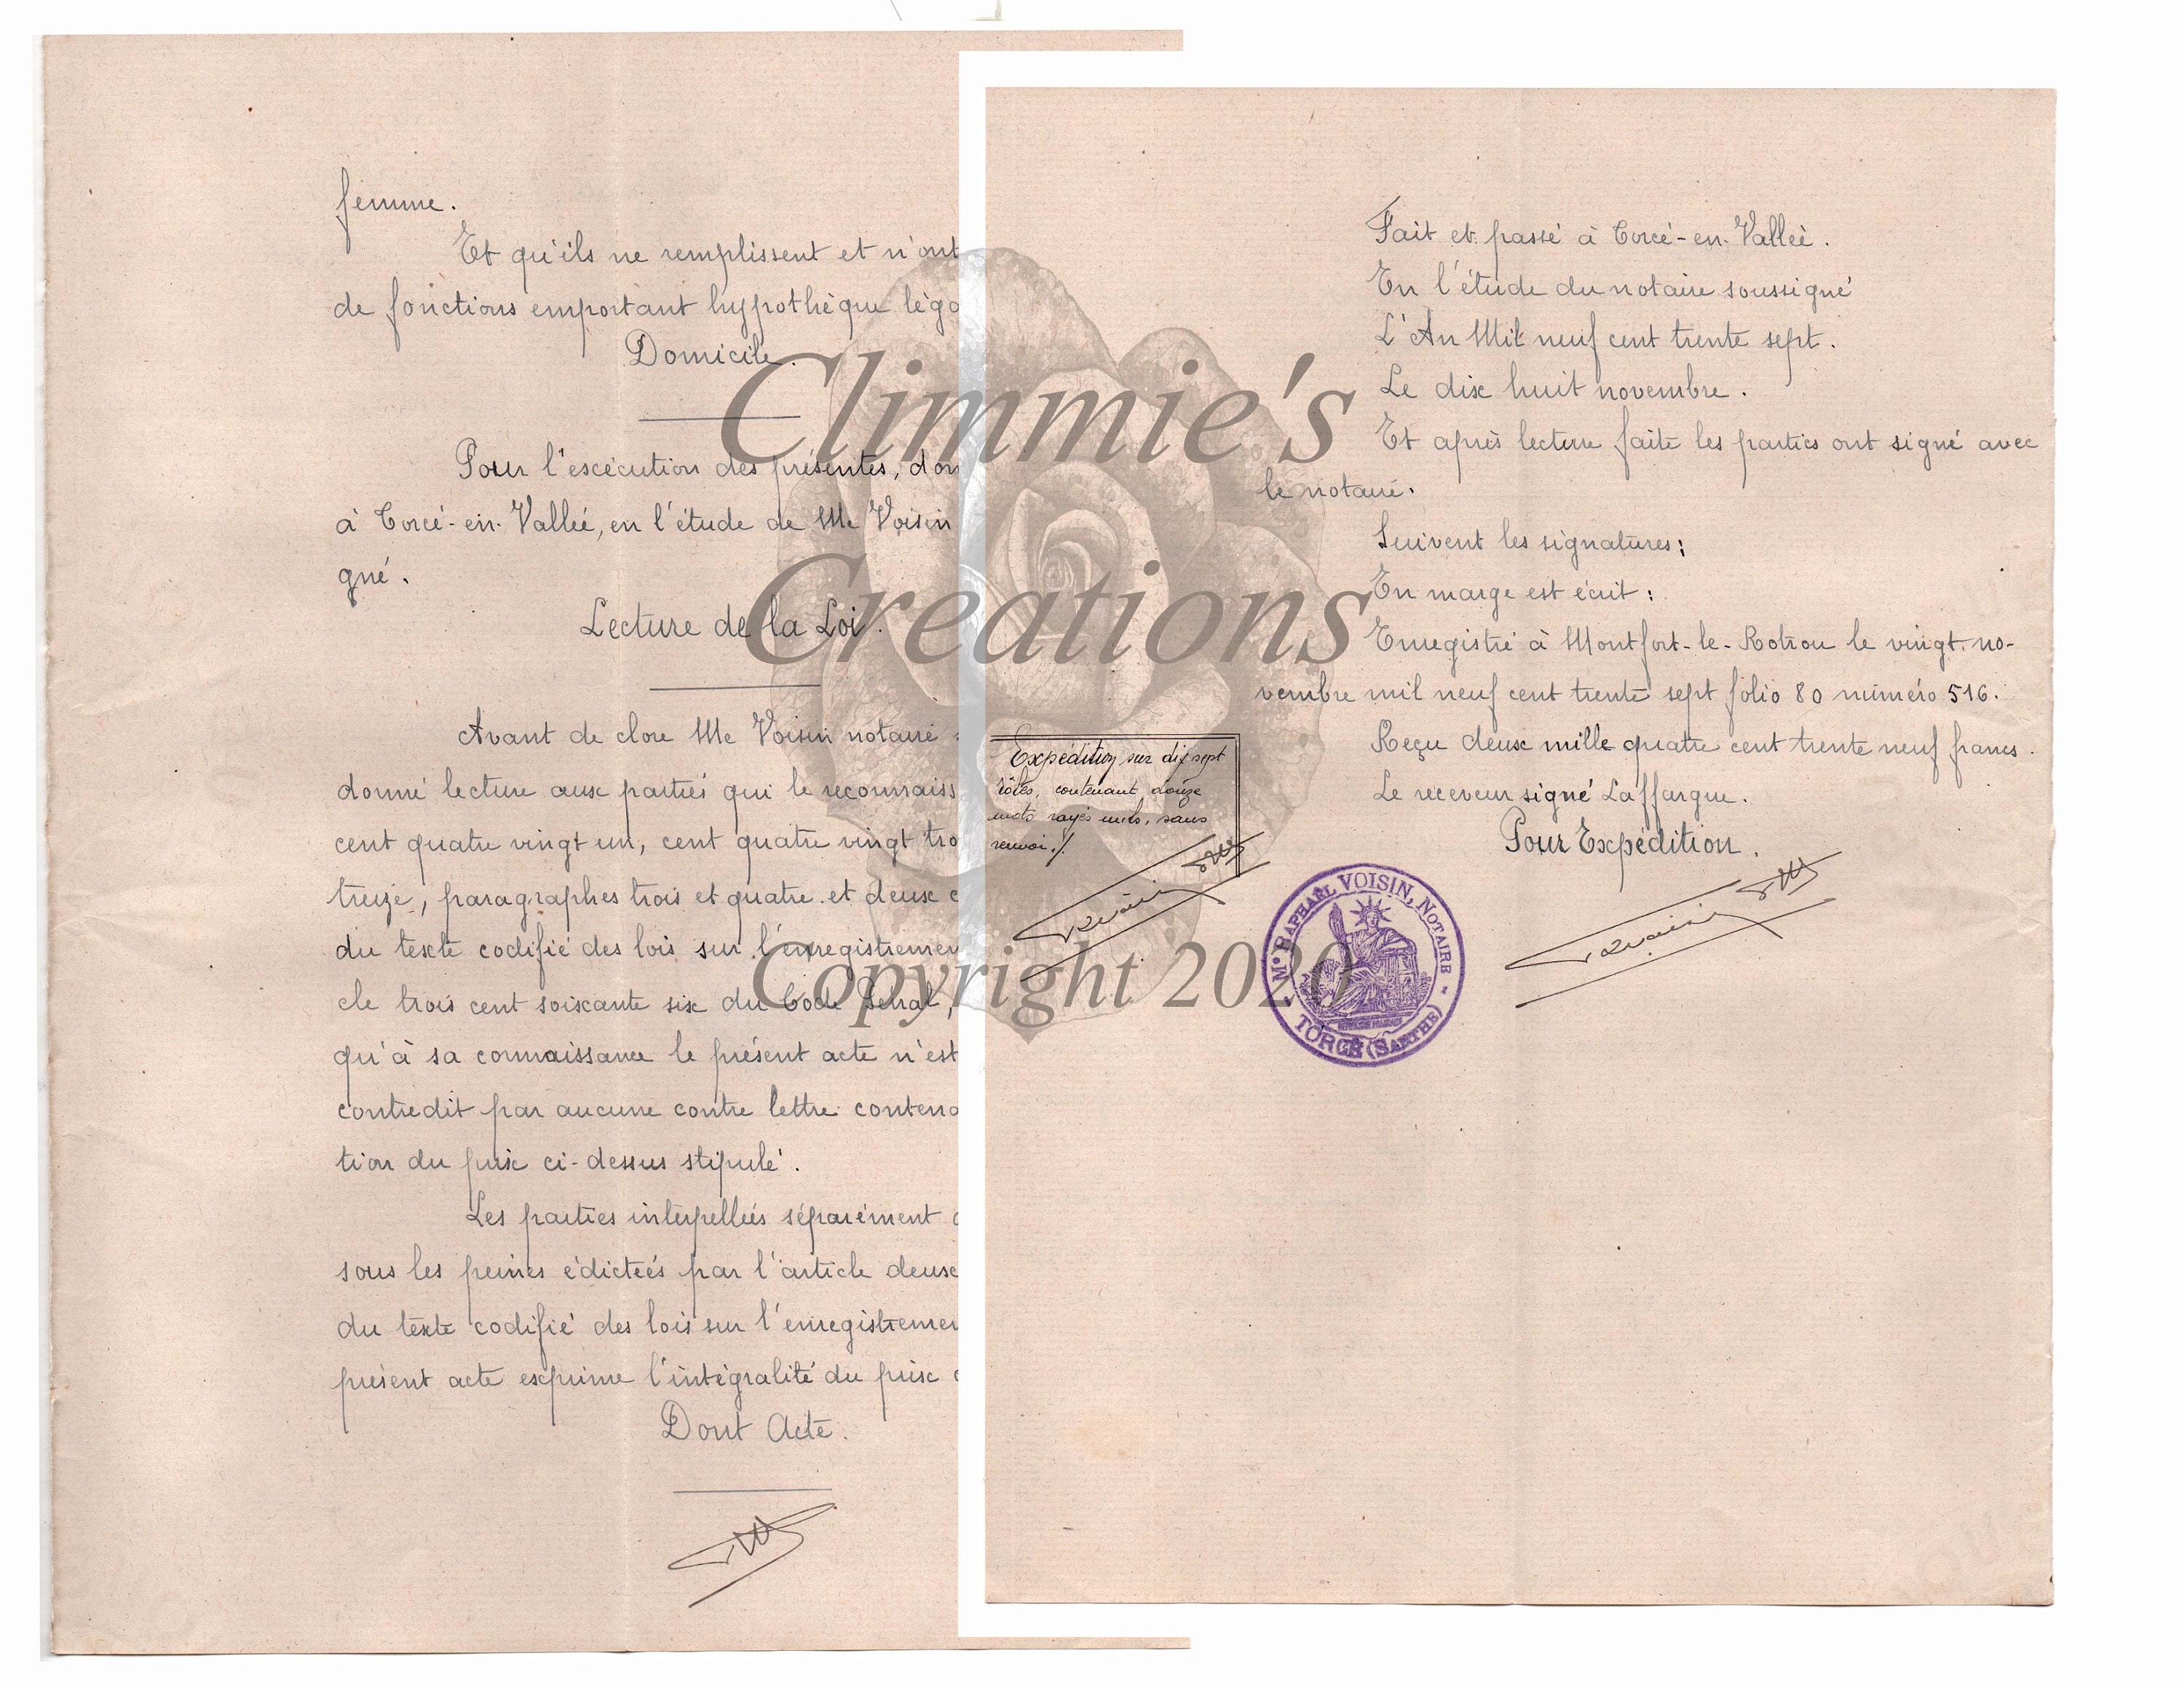 femme.
Et qu'ils ne remplissent et n'ont
de fonctions emportant hypothèque léga
Domicile.
Pour l'exécution des présentes, dom
à Torcé-en-Vallée, en l'étude de Me Voisin
gné.
Lecture de la Loi.
Avant de clore Me Voisin notaire
donné lecture aux parties qui le reconnaiss
cent quatre vingt un, cent quatre vingt tro
treize, paragraphes trois et quatre et deux c
du texte codifié des lois sur l'enregistremen
cle trois cent soixante six du Code Pénal,
qu'à sa connaissance le présent acte n'est
contredit par aucune contre lettre contena
tion du prix ci-dessus stipulé.
Les parties interpellées séparément
sous les peines édictées par l'article deux
du texte codifié des lois sur l'enregistremen
présent acte exprime l'intégralité du prix
Dont Acte.
Fait et passé à Torcé-en-Vallée.
En l'étude du notaire soussigné
L'An Mil neuf cent trente sept.
Le dix huit novembre.
Et après lecture faite les parties ont signé avec
le notaire.
Suivent les signatures:
En marge est écrit:
Enregistré à Montfort-le-Rotrou le vingt no-
vembre mil neuf cent trente sept folio 80 numéro 516.
Reçu deux mille quatre cent trente neuf francs.
Le receveur signé Laffargue.
Pour Expédition.
Expédition sur dix sept
rôles, contenant douze
mots rayés nuls, sans
renvoi./.
Me RAPHAËL VOISIN, NOTAIRE
TORCÉ (SARTHE)
Climmie's
Creations
Copyright 2020